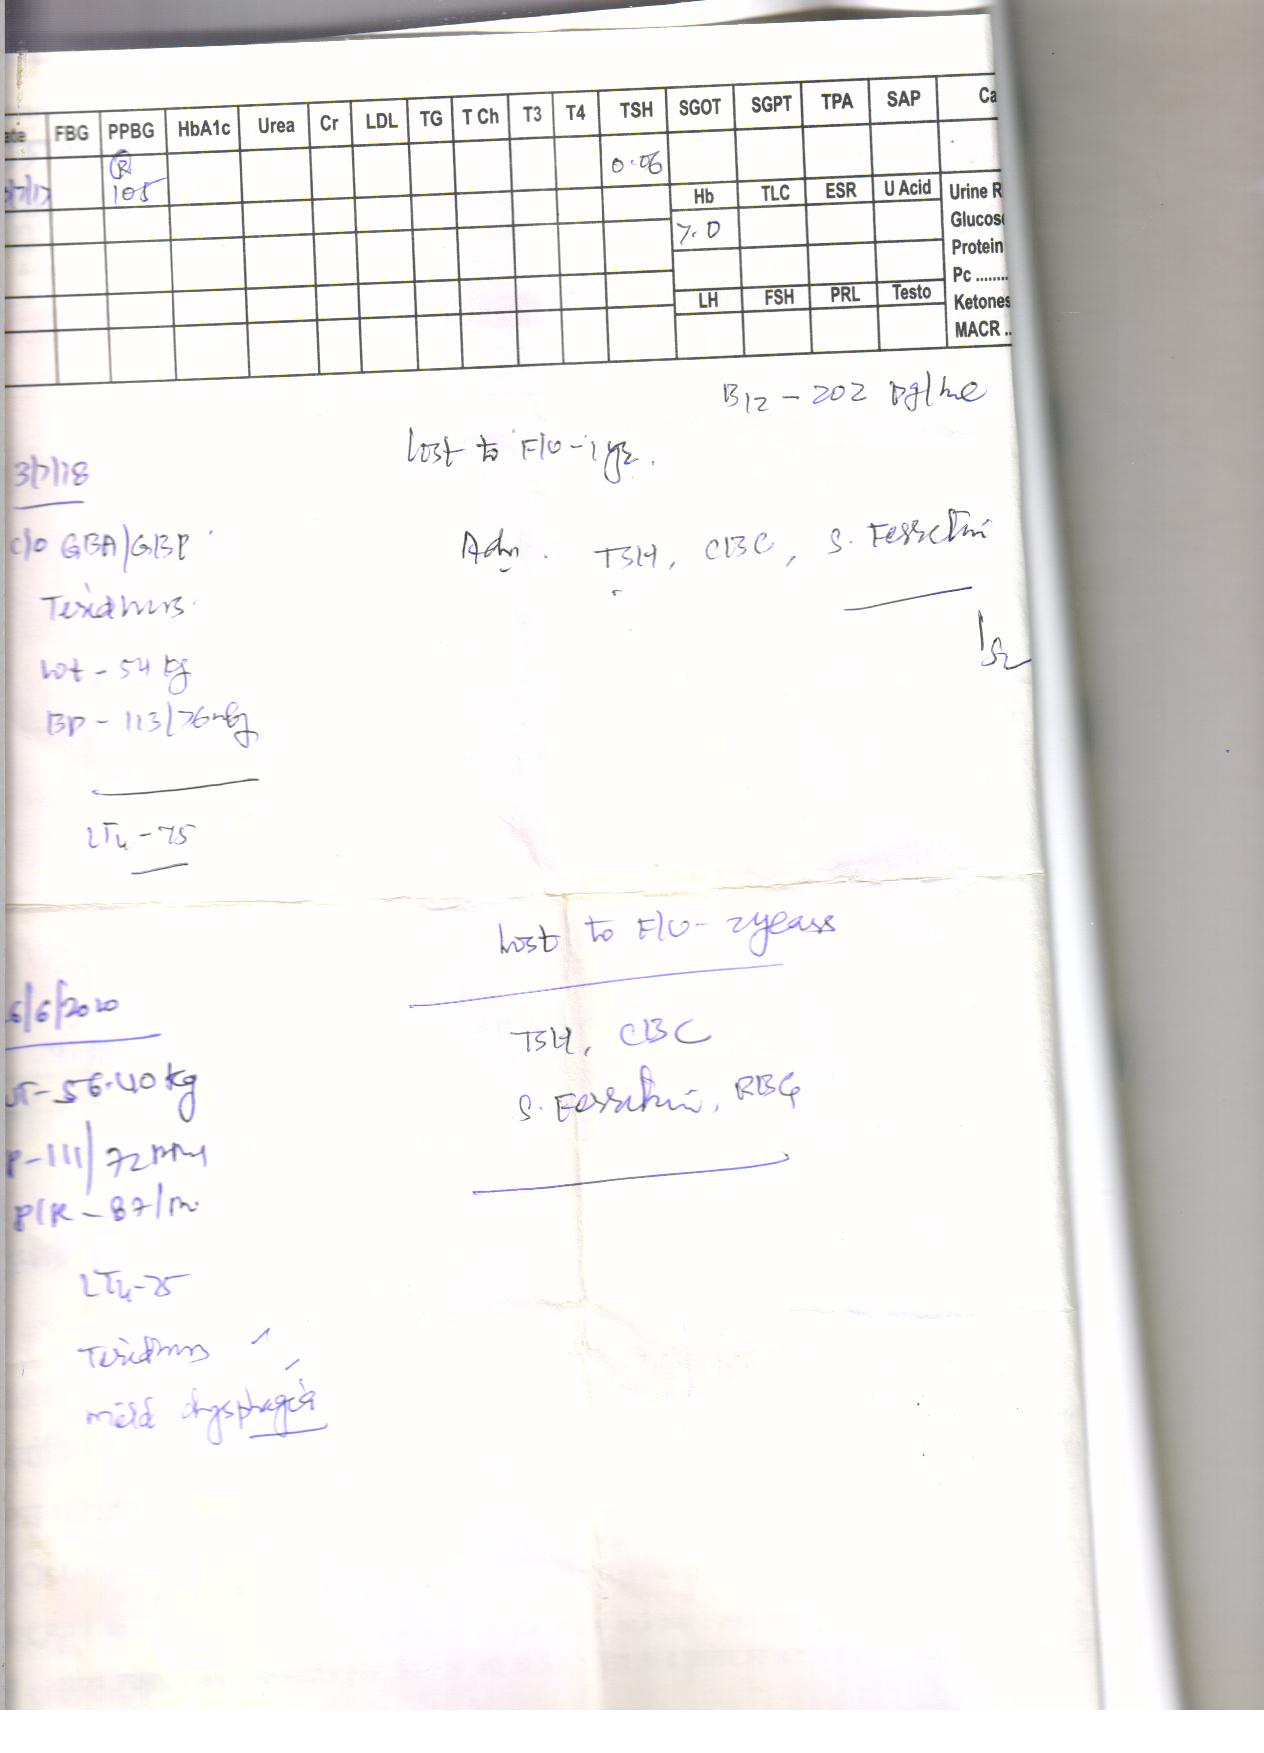 FBG PPBG HbA1c Urea Cr LDL TG T Ch T3 T4 TSH SGOT SGPT TPA SAP Ca
R 105 0.06
Hb TLC ESR U Acid Urine R
7.0 Glucos
Protein
Pc ........
LH FSH PRL Testo Ketones
MACR ..
B12 - 202 pg/ml
Lost to F/U - 1 yr.
3/7/18
c/o GBA/GBP
Adv. TSH, CBC, S. Ferretin
Wt - 54 kg
BP - 113/76
LT4 - 75
Lost to F/U - 2 years
6/6/2020
TSH, CBC
T - 56.40 kg
S. Ferretin, RBG
P - 111/72
P/R - 87/m
LT4 - 75
mild dysphagia